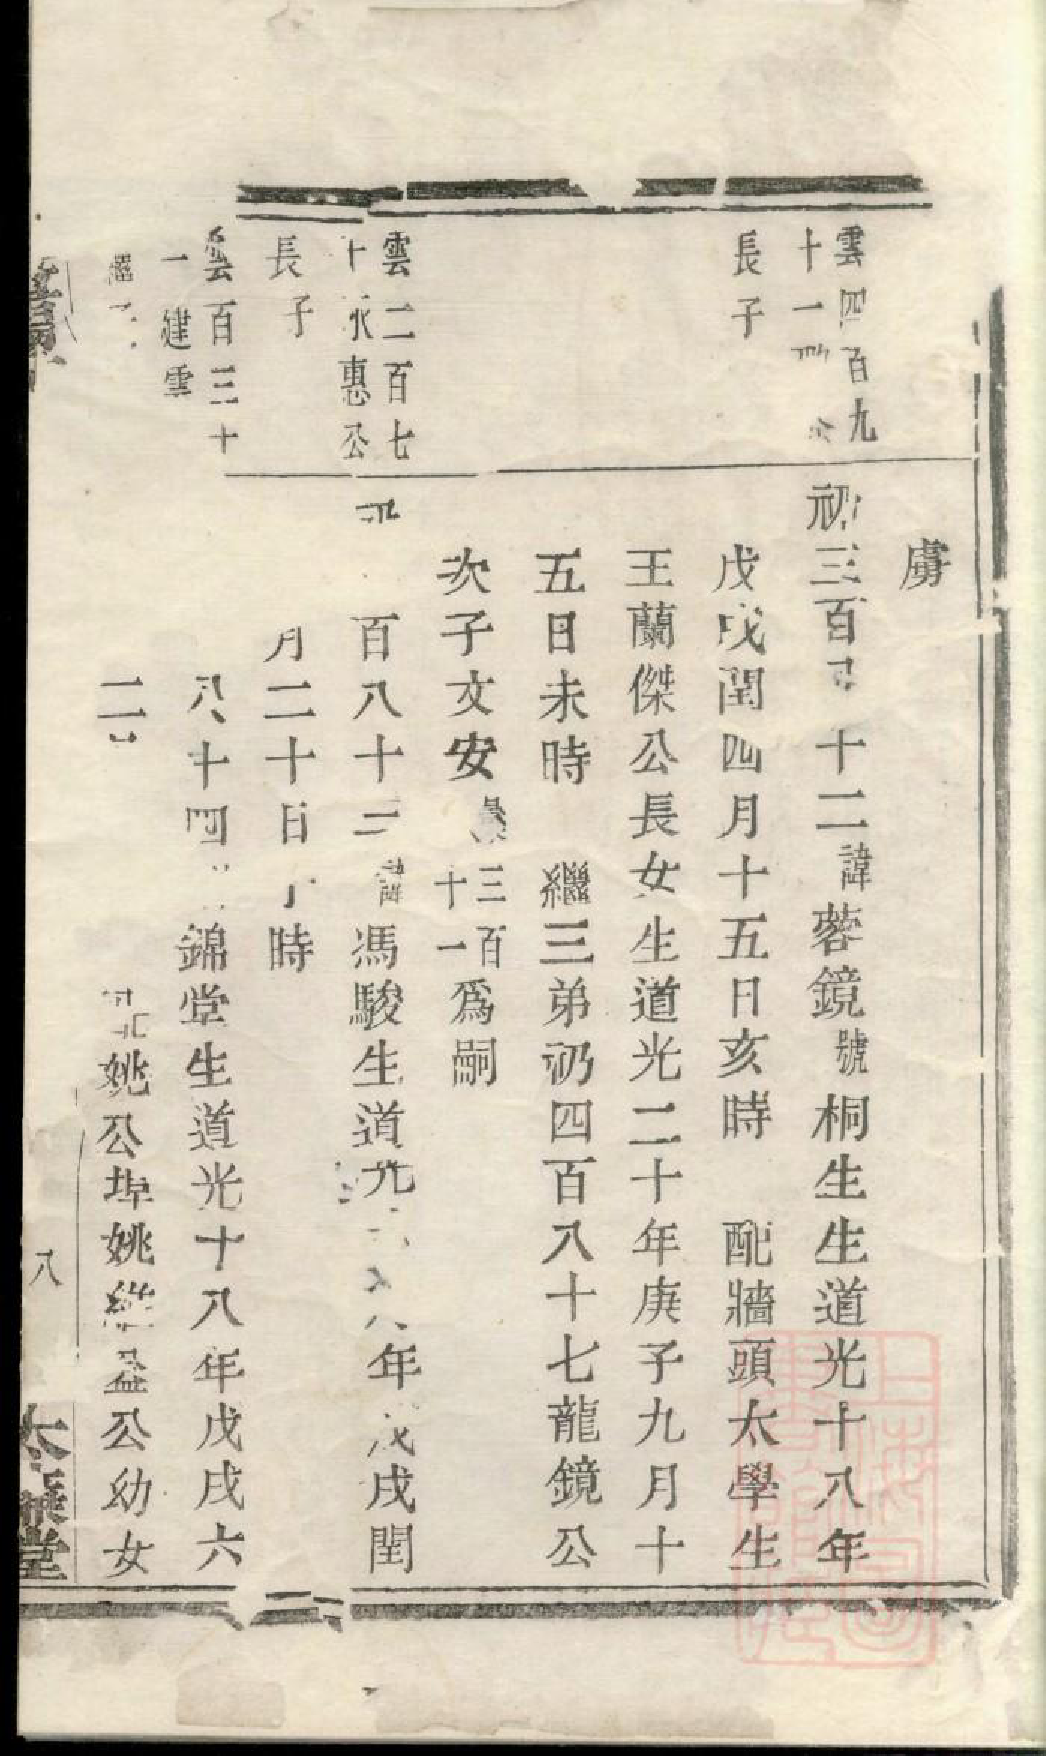 虜
雲四百九
十一
長子
礽三百 十二諱蓉鏡號桐生生道光十八年
戊戌閏四月十五日亥時 配牆頭太學生
王蘭傑公長女生道光二十年庚子九月十
五日未時 繼三弟礽四百八十七龍鏡公
次子文安 三百
十一爲嗣
雲二百七
十 惠公
長子
百八十三諱馮駿生道光 年戊戌閏
月二十日 時
雲百三十
一建雲
繼
八十四 錦堂生道光十八年戊戌六
二 姚公埠姚 益公幼女
八
太 堂